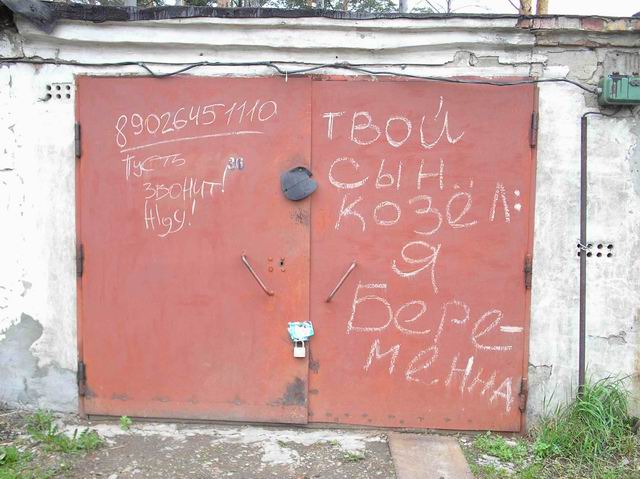 89026451110
Пусть
звонит!
Жду!
36
твой
сын
козёл:
я
Бере-
менна